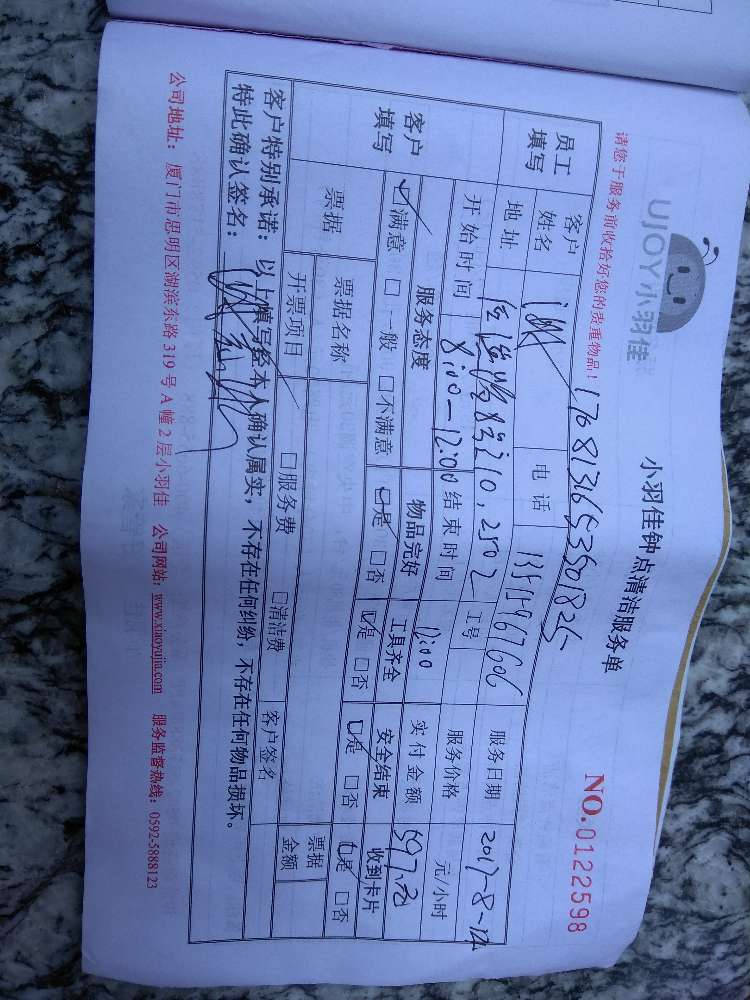 UJOY小羽佳
小羽佳钟点清洁服务单
NO.0122598
请您于服务前收拾好您的贵重物品！
员工填写
客户姓名
电话
服务日期
2017-8-12
地址
2502
工号
服务价格
元/小时
开始时间
8:00-12:00
结束时间
实付金额
客户填写
服务态度
物品完好
工具齐全
安全结束
收到卡片
☑满意 □一般 □不满意
☑是 □否
☑是 □否
☑是 □否
☑是 □否
票据
票据名称
票据金额
开票项目
□服务费
□清洁费
客户签名
客户特别承诺：以上填写经本人确认属实，不存在任何纠纷，不存在任何物品损坏。
特此确认签名：
公司地址：厦门市思明区湖滨东路319号A幢2层小羽佳 公司网站：www.xiaoyujia.com 服务监督热线：0592-5888123